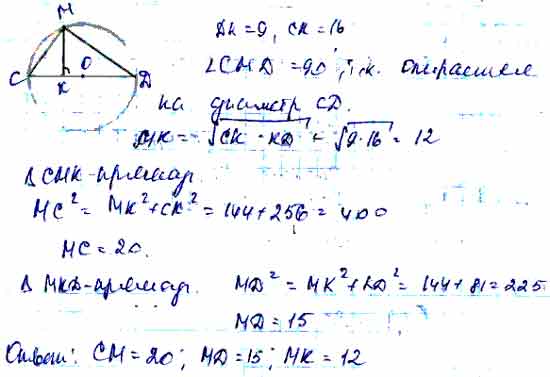 M
C K O D
DK = 9, CK = 16
∠CMD = 90°, т.к. опирается
на диаметр CD.
MK = √CK · KD = √9·16 = 12
Δ CMK - прямоуг.
MC² = MK² + CK² = 144 + 256 = 400
MC = 20.
Δ MKD - прямоуг. MD² = MK² + KD² = 144 + 81 = 225
MD = 15
Ответ: CM = 20; MD = 15; MK = 12